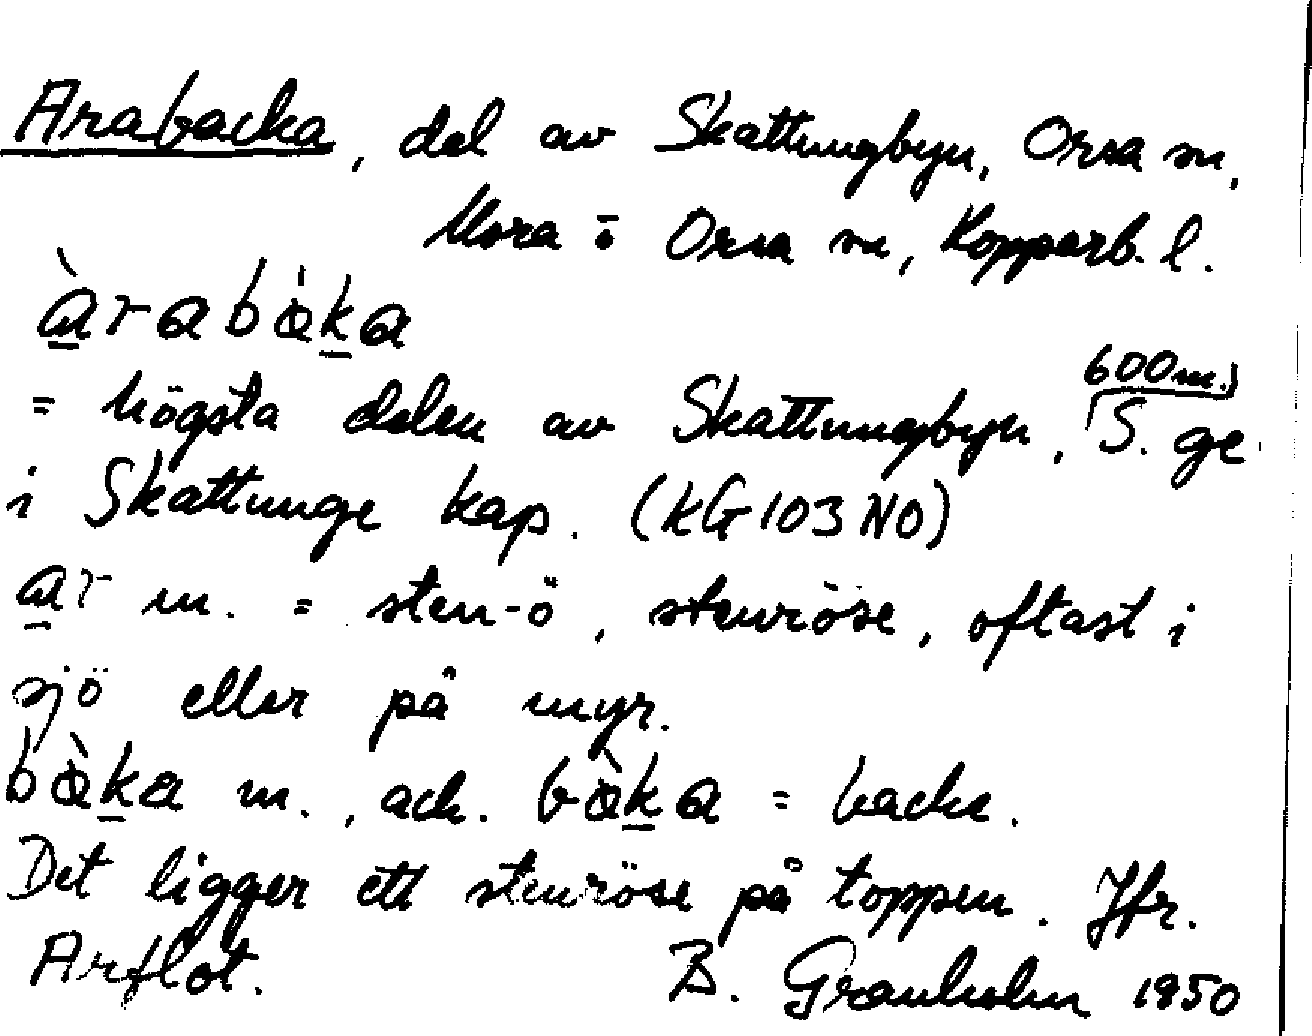 Arabacka, del av Skattungbyn, Orsa sn,
Mora o Orsa sn, Kopparb. l.
àrabàka
= högsta delen av Skattungbyn, S. ge
600 m.
i Skattunge kap. (KG 103 NO)
ar m. = sten-ö, stenröse, oftast i
sjö eller på myr.
bàka m., ack. bàka = backe.
Det ligger ett stenröse på toppen. Jfr.
Arflot. B. Granholm 1950